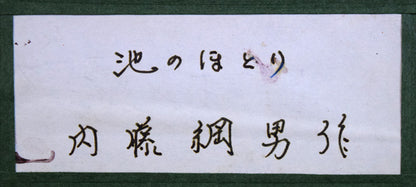 池のほとり
内藤綱男作